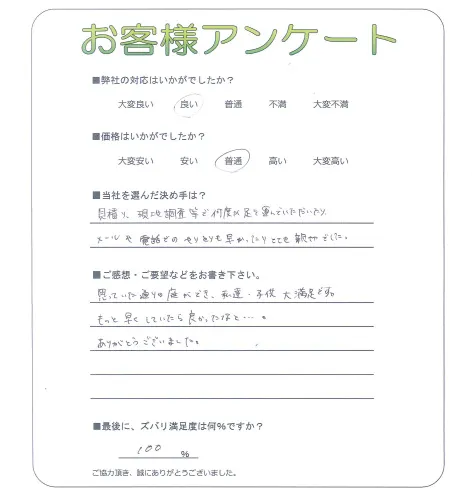 お客様アンケート
■弊社の対応はいかがでしたか？
大変良い 良い 普通 不満 大変不満
■価格はいかがでしたか？
大変安い 安い 普通 高い 大変高い
■当社を選んだ決め手は？
見積り、現地調査等で何度も足を運んでいただいたり
メールや電話でのやりとりも早かったりとても親切でした。
■ご感想・ご要望などをお書き下さい。
思っていた通りの庭ができ、私達・子供大満足です
もっと早くしていたら良かったなと…。
ありがとうございました。
■最後に、ズバリ満足度は何%ですか？
100 %
ご協力頂き、誠にありがとうございました。